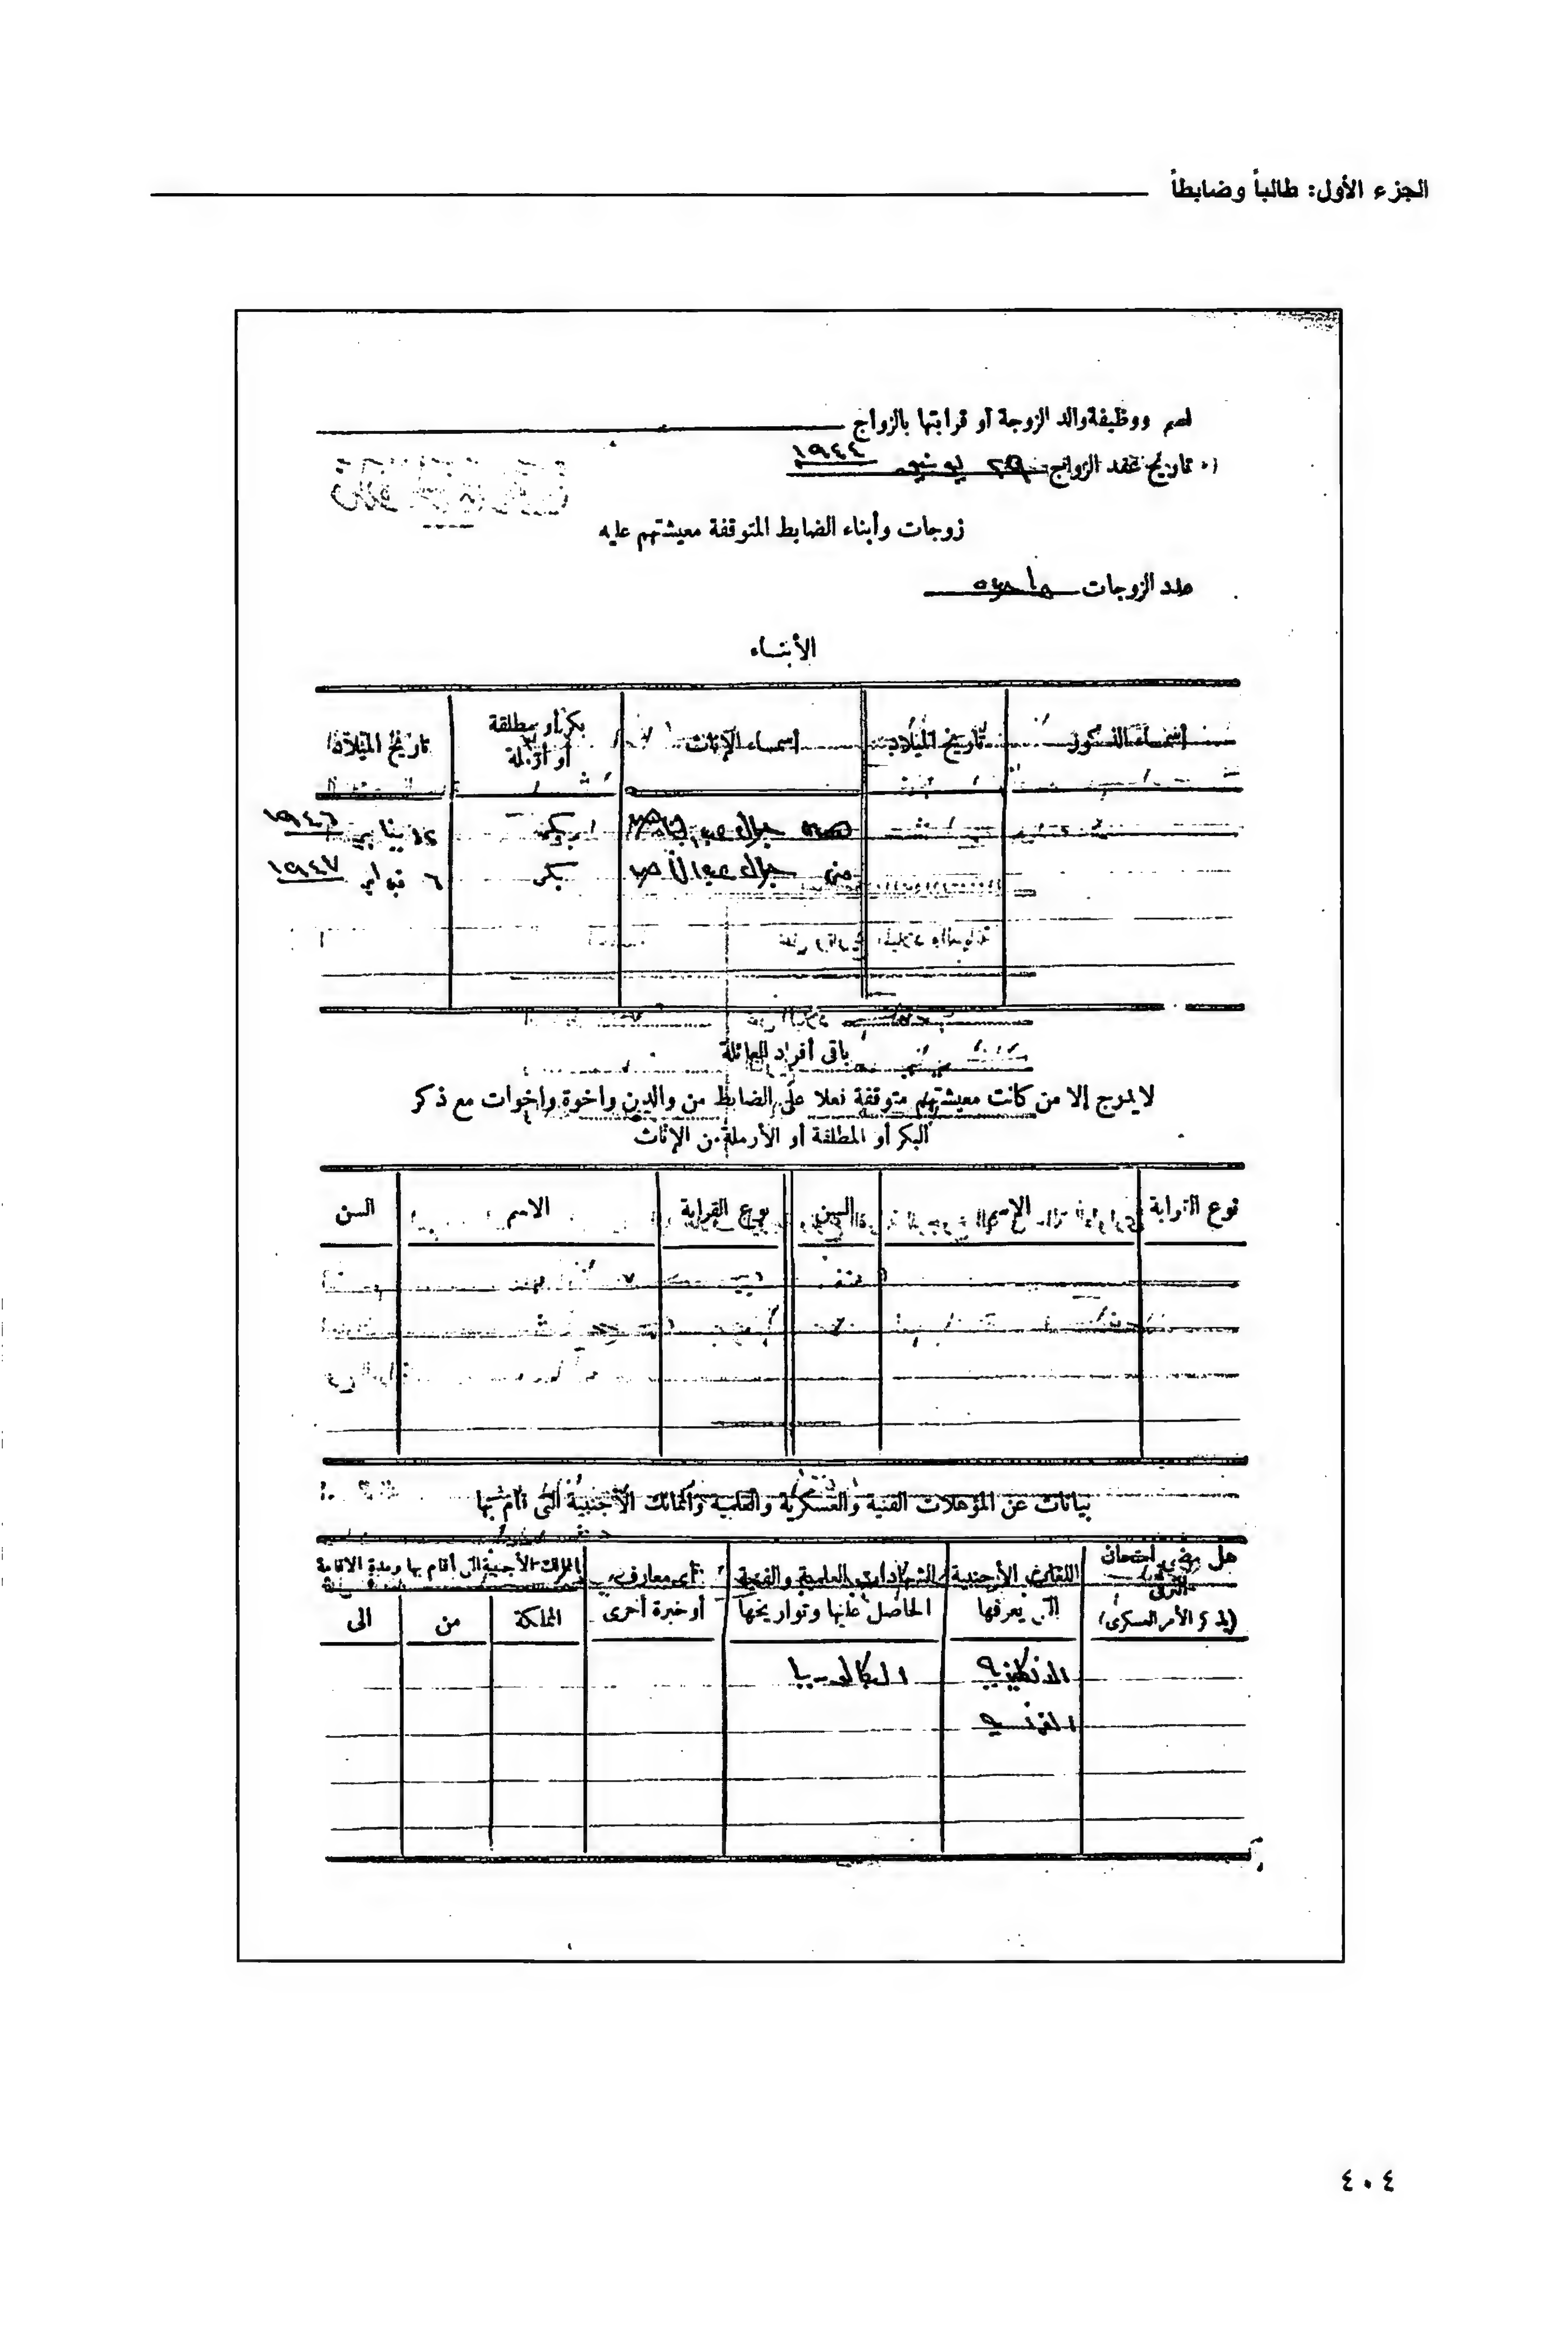 الجزء الأول: طالباً وضابطاً
اسم ووظيفة والد الزوجة أو قرابتها بالزواج
تاريخ عقد الزواج ٢٩ يونيو ١٩٤٤
زوجات وأبناء الضابط المتوقفة معيشتهم عليه
عدد الزوجات واحدة
الأبناء
أسماء الذكور تاريخ الميلاد أسماء الإناث بكر أو مطلقة أو أرملة تاريخ الميلاد
هدى جمال عبد الناصر بكر ١٢ يناير ١٩٤٦
منى جمال عبد الناصر بكر ٦ فبراير ١٩٤٧
باقى أفراد العائلة
لا يدرج إلا من كانت معيشتهم متوقفة فعلا على الضابط من والدين واخوة واخوات مع ذكر
البكر أو المطلقة أو الأرملة من الإناث
نوع القرابة الاسم السن نوع القرابة الاسم السن
بيانات عن المؤهلات الفنية والعسكرية والعلمية والممالك الأجنبية التى قام بها
هل مضى امتحان الترقى (يذكر الأمر العسكرى) اللغات الأجنبية التى يعرفها الشهادات العلمية والفنية الحاصل عليها وتواريخها أى معارف أو خبرة أخرى الممالك الأجنبية التى أقام بها ومدة الاقامة
المملكة من الى
الانكليزية البكالوريا
الفرنسية
٤٠٤